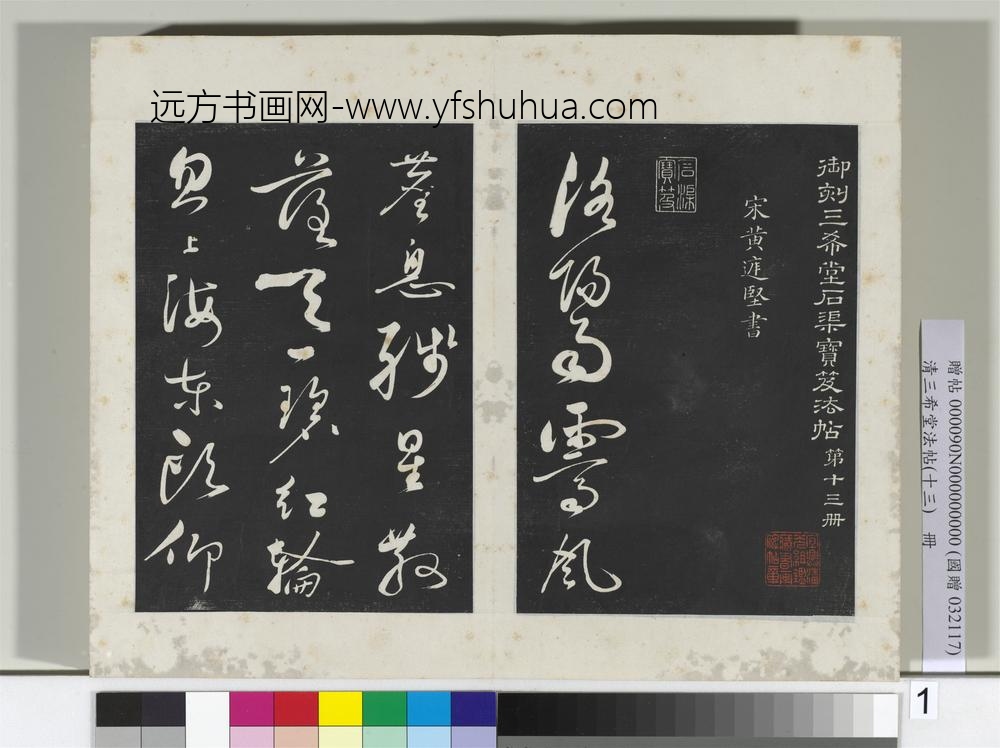 远方书画网-www.yfshuhua.com
御刻三希堂石渠寶笈法帖第十三冊
宋黃庭堅書
石渠寶笈
洛陽雨霽風
塵息殘星散
落天一碧紅輪
忽上海東頭仰
贈帖 000090N000000000 (國贈 032117)
清三希堂法帖(十三) 冊
1